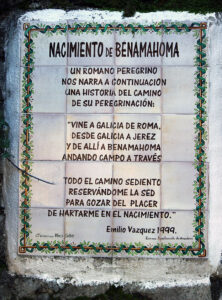 NACIMIENTO DE BENAMAHOMA
UN ROMANO PEREGRINO
NOS NARRA A CONTINUACIÓN
UNA HISTORIA DEL CAMINO
DE SU PEREGRINACIÓN:
"VINE A GALICIA DE ROMA,
DESDE GALICIA A JEREZ
Y DE ALLÍ A BENAMAHOMA
ANDANDO CAMPO A TRAVÉS
TODO EL CAMINO SEDIENTO
RESERVÁNDOME LA SED
PARA GOZAR DEL PLACER
DE HARTARME EN EL NACIMIENTO."
Emilio Vazquez 1999.